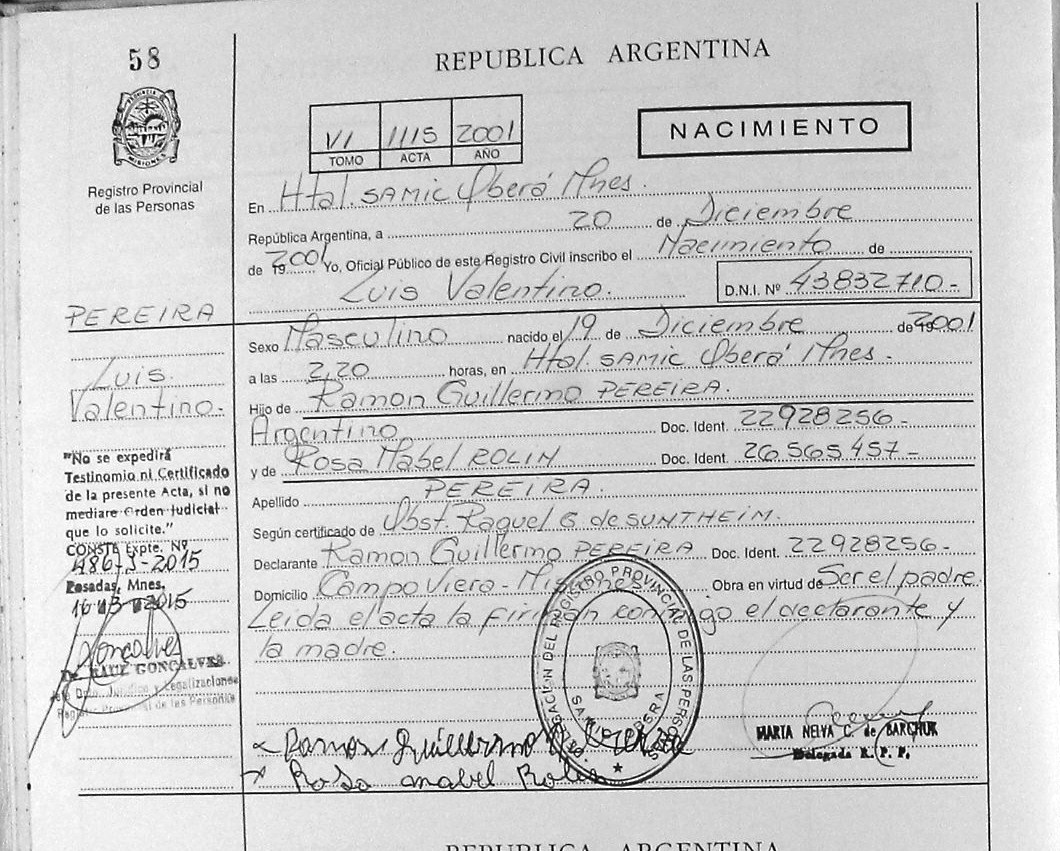 58
REPUBLICA ARGENTINA
VI 1115 2001
TOMO ACTA AÑO
NACIMIENTO
PROVINCIA DE MISIONES
Registro Provincial
de las Personas
En Htal. SAMIC Oberá Mnes.
República Argentina, a 20 de Diciembre
de 19 2001 Yo, Oficial Público de este Registro Civil inscribo el Nacimiento de
Luis Valentino. D.N.I. Nº 43832710.-
PEREIRA
Luis
Valentino.
Sexo Masculino nacido el 19 de Diciembre de 19 2001
a las 2,20 horas, en Htal. SAMIC Oberá Mnes.
Hijo de Ramon Guillermo PEREIRA.
Argentino Doc. Ident. 22928256.-
y de Rosa Mabel ROLIN Doc. Ident. 26565457-
Apellido PEREIRA.
Según certificado de Obst. Raquel G de SUNTHEIM.
Declarante Ramon Guillermo PEREIRA Doc. Ident. 22928256-
Domicilio Campo Viera - Misiones Obra en virtud de Ser el padre.
Leida el acta la firman conmigo el declarante y
la madre.
"No se expedirá
Testimonio ni Certificado
de la presente Acta, si no
mediare Orden Judicial
que lo solicite."
CONSTA Expte. Nº
2015
Posadas, Mnes.
2015
Goncalves
Dr. RAUL GONCALVES
Dpto. Jurídico y Legalizaciones
Registro Provincial de las Personas
DEL REGISTRO PROVINCIAL DE LAS PERSONAS
Ramon Guillermo
Rosa mabel Rolin
MARTA NELVA C. de BARCHUK
Delegada R. P. P.
REPUBLICA ARGENTINA